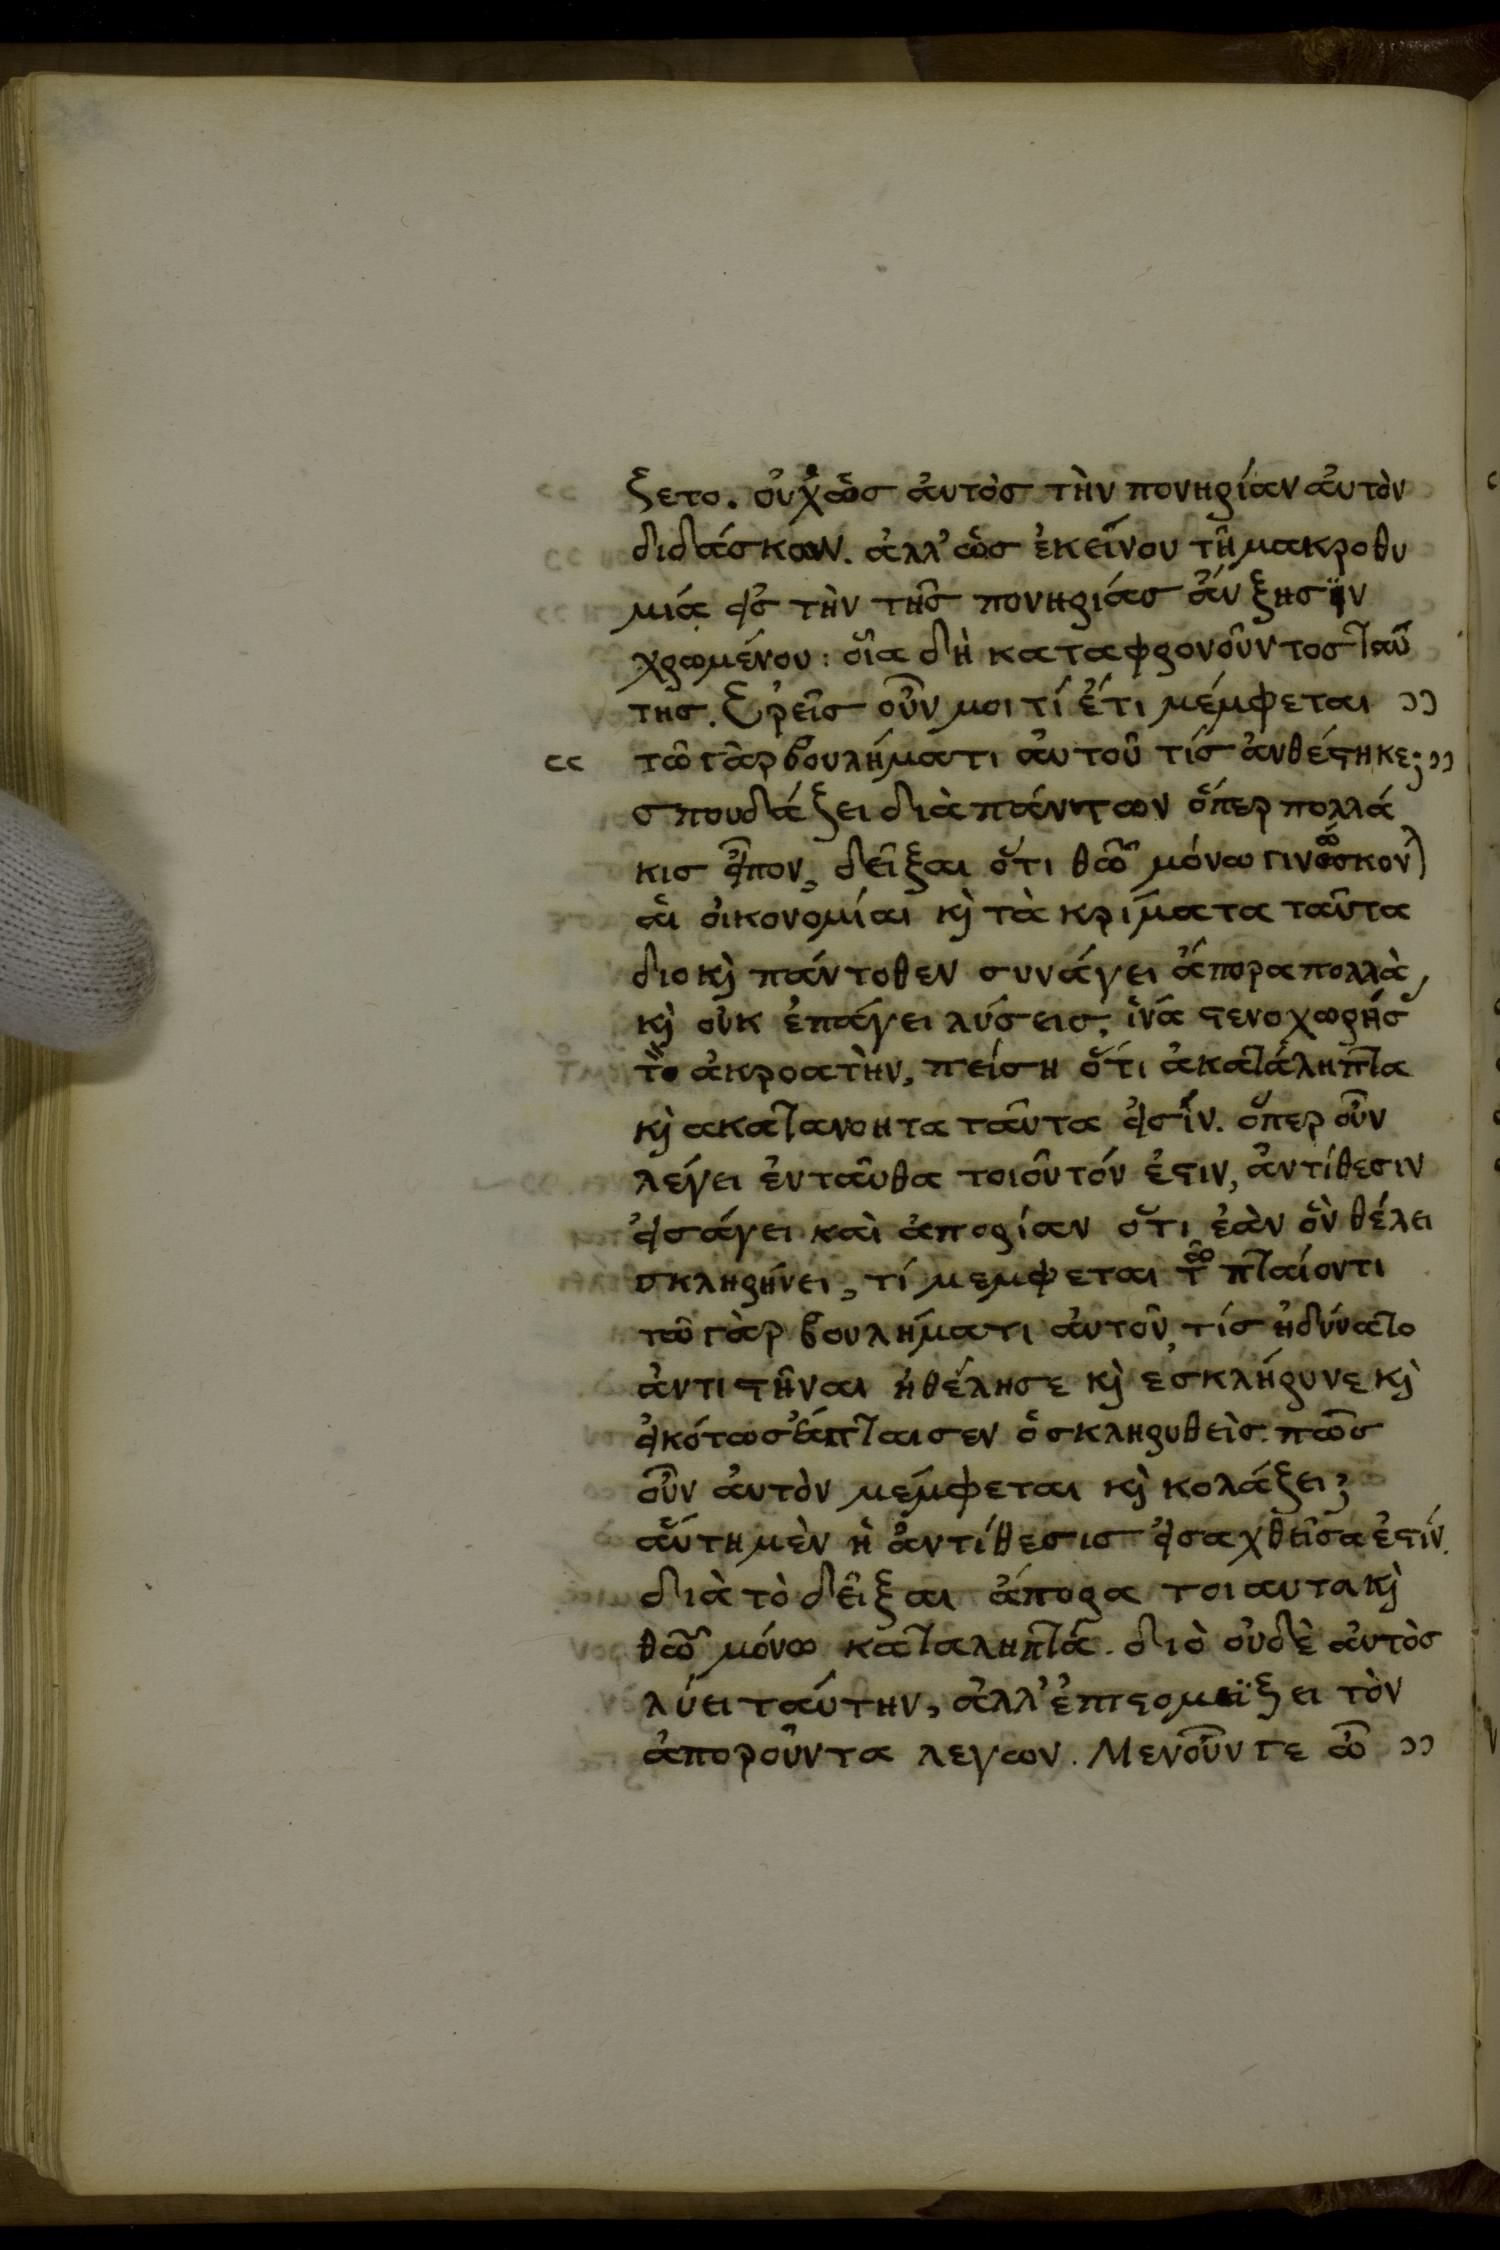 ξετο. οὐχ̓ ὡς ἀυτὸς τὴν πονηρίαν ἀυτὸν
διδάσκων. ἀλλ' ὡς ἐκείνου τῆ μακροθυ
μία εἰς τὴν τῆς πονηρίας ἄυξησιν
χρωμένου: οἷα δὴ καταφρονοῦντος ταύ
της. Ἐρεῖς οὖν μοι τί ἔτι μέμφεται ››
‹‹ τῶ γὰρ βουλήματι ἀυτοῦ τίς ἀνθέστηκε; ››
σπουδάξει διὰ πάντων ὅπερ πολλά
κις εἶπον, δεῖξαι ὅτι θῶ μόνω γινώσκον)
αἱ οἰκονομίαι κὶ τὰ κρίματα ταῦτα
διο κὶ πάντοθεν συνάγει ἄπορα πολλὰ,
κὶ οὐκ ἐπάγει λύσεις, ἱνά στενοχωρήσ
τὸ ἀκροατὴν, πείση ὅτι ἀκατάληπτα
κὶ ακατανοητα ταῦτα εἰσίν. ὅπερ οὖν
λέγει ἐνταῦθα τοιοῦτόν ἐστιν, ἀντίθεσιν
εἰσάγει καὶ ἀπορίαν ὅτι ἐὰν ὃν θέλει
σκληρήνει, τί μεμφεται τῶ πταίοντι
τῶ γὰρ βουλήματι ἀυτοῦ, τίς ἠδύνατο
ἀντιστῆναι ἠθέλησε κὶ ἐσκλήρυνε κὶ
εἰκότως ἔπταισεν ὁ σκληρυθεὶς. πῶς
οὖν ἀυτὸν μέμφεται κὶ κολάξει;
ἅυτη μὲν ἡ ἀντίθεσις εἰσαχθεῖσα ἐστίν.
διὰ τὸ δεῖξαι ἄπορα τοιαυτα κὶ
θῶ μόνω καταληπτά. διὸ οὐδὲ ἀυτὸς
λύει ταύτην, ἀλλ' ἐπιστομεΐξει τὸν
ἀποροῦντα λεγων. Μενοῦν γε ὦ ››